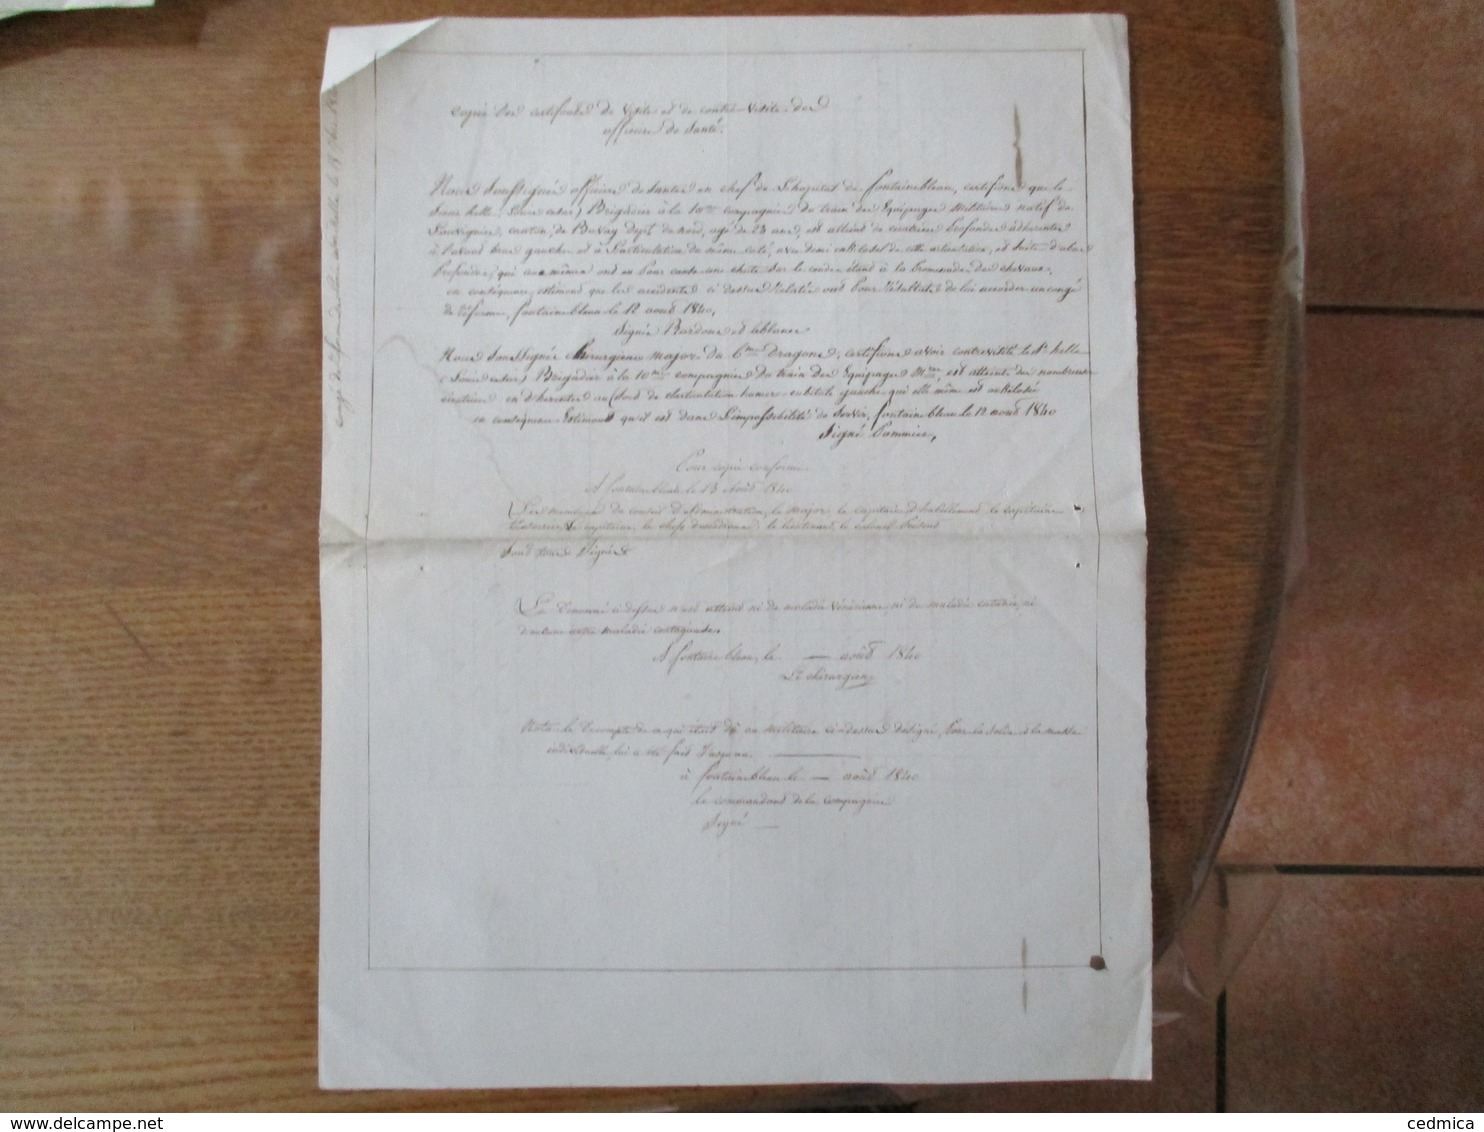 Copie des certificats de Visite et de contre-Visite des
officiers de Santé.
Nous Soussignés officiers de Santé en chef de L'hopital de fontainebleau, certifions que le
Sieur helle (Louis ) Brigadier à la 10me compagnie du train des Equipages Militaires natif de
canton de Bavay dept du nord, agé de 23 ans, est atteint de cicatrices Profondes adhérentes
à l'avant bras gauche et à l'articulation du même coté, avec demi de cette articulation, et suite d'abcès
Profonds, qui eux mêmes ont eu Pour cause une chute sur le coude étant à la Promenade des chevaux,
en conséquence, estimons que les accidents ci dessus Relatés ont Pour Résultats de lui accorder un congé
de Réforme, fontainebleau le 12 août 1840,
Signés Bardoux et Leblanc
Nous Soussigné Chirurgien major du 6me Dragons, certifions avoir contrevisité le Sr helle
(Louis ) Brigadier à la 10me compagnie du train des Equipages Mres est atteint de nombreuses
cicatrices au de L'articulation gauche, qui elle même est
en conséquence Estimons qu'il est dans L'impossibilité de Servir, fontainebleau le 12 août 1840
Signé Pommier,
Pour copie conforme
A fontainebleau le 13 Août 1840
Les membres du conseil d'Administration, le Major, le capitaine d'habillement, le capitaine
trésorier, le capitaine, le chef d'escadrons, le lieutenant, le colonel Président
Sont tous Signés
Le Dénommé ci dessus n'est atteint ni de maladie Vénérienne, ni de maladie cutanée, ni
d'aucune autre maladie contagieuse.
A fontainebleau, le — août 1840
Le chirurgien
Nota. le Décompte de ce qui était dû au militaire ci-dessus désigné, Pour la Solde et la masse
individuelle, lui a été fait
à fontainebleau le — août 1840
le commandant de la compagnie
Signé —
cedmica